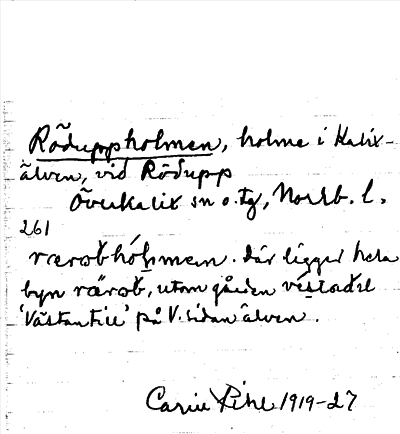 Röduppholmen, holme i Kalix-
älven, vid Rödupp
Överkalix sn o. tg, Norrb. l.
261
rærobhólmen. Där ligger hela
byn räròb, utom gården
'Västantill' på V. sidan älven.
Carin Pihl 1919-27